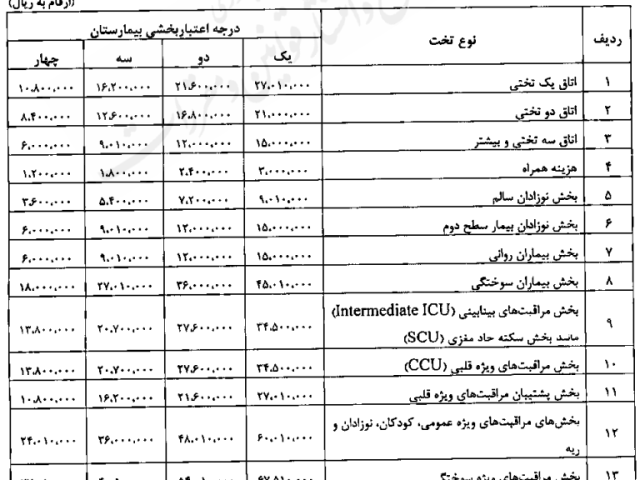 (ارقام به ریال)
ردیف نوع تخت درجه اعتباربخشی بیمارستان
یک دو سه چهار
۱ اتاق یک تختی ۲۷،۰۱۰،۰۰۰ ۲۱،۶۰۰،۰۰۰ ۱۶،۲۰۰،۰۰۰ ۱۰،۸۰۰،۰۰۰
۲ اتاق دو تختی ۲۱،۰۰۰،۰۰۰ ۱۶،۸۰۰،۰۰۰ ۱۲،۶۰۰،۰۰۰ ۸،۴۰۰،۰۰۰
۳ اتاق سه تختی و بیشتر ۱۵،۰۰۰،۰۰۰ ۱۲،۰۰۰،۰۰۰ ۹،۰۱۰،۰۰۰ ۶،۰۰۰،۰۰۰
۴ هزینه همراه ۳،۰۰۰،۰۰۰ ۲،۴۰۰،۰۰۰ ۱،۸۰۰،۰۰۰ ۱،۲۰۰،۰۰۰
۵ بخش نوزادان سالم ۹،۰۱۰،۰۰۰ ۷،۲۰۰،۰۰۰ ۵،۴۰۰،۰۰۰ ۳،۶۰۰،۰۰۰
۶ بخش نوزادان بیمار سطح دوم ۱۵،۰۰۰،۰۰۰ ۱۲،۰۰۰،۰۰۰ ۹،۰۱۰،۰۰۰ ۶،۰۰۰،۰۰۰
۷ بخش بیماران روانی ۱۵،۰۰۰،۰۰۰ ۱۲،۰۰۰،۰۰۰ ۹،۰۱۰،۰۰۰ ۶،۰۰۰،۰۰۰
۸ بخش بیماران سوختگی ۴۵،۰۱۰،۰۰۰ ۳۶،۰۰۰،۰۰۰ ۲۷،۰۱۰،۰۰۰ ۱۸،۰۰۰،۰۰۰
۹ بخش مراقبت‌های بینابینی (Intermediate ICU)
مانند بخش سکته حاد مغزی (SCU) ۳۴،۵۰۰،۰۰۰ ۲۷،۶۰۰،۰۰۰ ۲۰،۷۰۰،۰۰۰ ۱۳،۸۰۰،۰۰۰
۱۰ بخش مراقبت‌های ویژه قلبی (CCU) ۳۴،۵۰۰،۰۰۰ ۲۷،۶۰۰،۰۰۰ ۲۰،۷۰۰،۰۰۰ ۱۳،۸۰۰،۰۰۰
۱۱ بخش پشتیبان مراقبت‌های ویژه قلبی ۲۷،۰۱۰،۰۰۰ ۲۱،۶۰۰،۰۰۰ ۱۶،۲۰۰،۰۰۰ ۱۰،۸۰۰،۰۰۰
۱۲ بخش‌های مراقبت‌های ویژه عمومی، کودکان، نوزادان و
ریه ۶۰،۰۱۰،۰۰۰ ۴۸،۰۱۰،۰۰۰ ۳۶،۰۰۰،۰۰۰ ۲۴،۰۱۰،۰۰۰
۱۳ بخش مراقبت‌های ویژه سوختگی